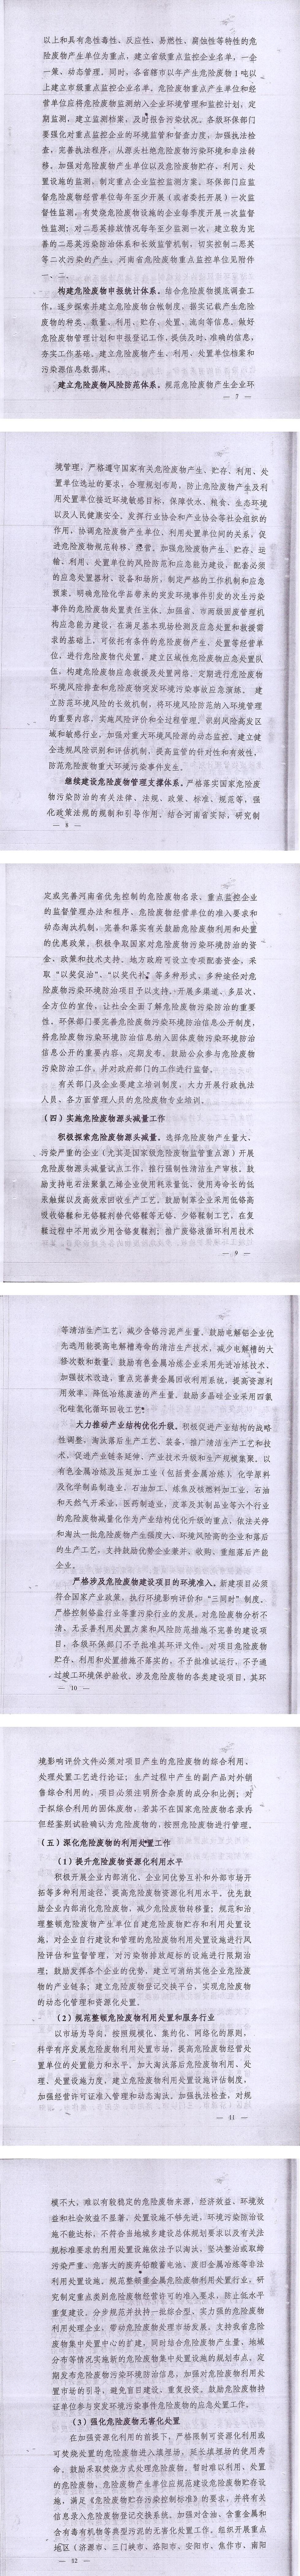 以上和具有急性毒性、反应性、易燃性、腐蚀性等特性的危
险废物产生单位为重点，建立省级重点监控企业名单，一企
一策、动态管理。同时，各省辖市以年产生危险废物1吨以
上建立市级重点监控企业名单。危险废物重点产生单位和经
营单位应将危险废物监测纳入企业环境管理和监控计划，定
期监测，建立监测档案，及时报告污染状况。各级环保部门
要强化对重点监控企业的环境监管和督查力度，加强执法检
查，完善执法程序，从源头杜绝危险废物污染环境和非法转
移。加强对危险废物产生单位以及危险废物贮存、利用、处
置设施的监测，制定重点企业监控监测方案。环保部门应监
督危险废物经营单位每年至少开展（或者委托开展）一次监
督性监测，有焚烧危险废物设施的企业每季度开展一次监督
性监测；对二恶英排放情况每年至少监测一次，建立较为完
善的二恶英污染防治体系和长效监管机制，切实控制二恶英
等二次污染的产生。河南省危险废物重点监控单位见附件
一、二。
构建危险废物申报统计体系。结合危险废物摸底调查工
作，逐步探索并建立危险废物台帐制度，据实记载产生危险
废物的种类、数量、利用、贮存、处置、流向等信息，做好
危险废物管理计划和申报登记工作，提供及时、准确的信息，
夯实工作基础。建立危险废物产生、利用、处置单位档案和
污染源信息数据库。
建立危险废物风险防范体系。规范危险废物产生企业环
— 7 —
境管理，严格遵守国家有关危险废物产生、贮存、利用、处
置单位选址的要求，合理规划布局，防止危险废物产生及利
用处置单位接近环境敏感目标，保障饮水、粮食、生态环境
以及人民健康安全。发挥行业协会和产业协会等社会组织的
作用，协调危险废物产生单位、利用处置单位间的关系，促
进危险废物规范转移、经营。加强危险废物产生、贮存、运
输、利用、处置单位的风险防范和应急能力建设，配套必须
的应急处置器材、设备和场所，制定严格的工作机制和应急
预案，明确危险化学品带来的突发环境事件引发的次生污染
事件的危险废物处置责任主体。加强省、市两级固废管理机
构应急能力建设，在满足基本现场检测及应急处置和救援需
求的基础上，可依托有条件的危险废物产生、处置等经营单
位，进行危险废物代处置，建立区域性危险废物应急处置队
伍，构建危险废物应急救援及处置网络。定期进行危险废物
环境风险排查和危险废物突发环境污染事故应急演练。 建
立防范环境风险的长效机制，将环境风险防范纳入环境管理
的重要内容，实施风险评价和全过程管理，识别风险高发区
域和敏感行业，加强对重大环境风险源的动态监控。建立健
全违规风险识别和评估机制，提高监管的针对性和有效性，
防范危险废物重大环境污染事件发生。
继续建设危险废物管理支撑体系。严格落实国家危险废
物污染防治的有关法律、法规、政策、标准、规范等，强
化政策法规的规制和引导作用。结合河南省实际，研究制
— 8 —
定或完善河南省优先控制的危险废物名录、重点监控企业
的监督管理办法和程序、危险废物经营单位的准入要求和
动态淘汰机制，完善和落实有关鼓励危险废物利用和处置
的优惠政策。积极争取国家对危险废物污染环境防治的资
金、政策和技术支持。地方政府可设立专项配套资金，采
取“以奖促治”、“以奖代补”等多种形式，多种途径对危
险废物污染环境防治项目予以支持。开展多渠道、多层次、
全方位的宣传，让社会全面了解危险废物污染防治的重要
性。环保部门要完善危险废物污染环境防治信息公开制度，
将危险废物污染环境防治信息纳入固体废物污染环境防治
信息公开的重要内容，定期发布。鼓励公众参与危险废物
污染防治工作，并对政府部门的工作进行监督。
有关部门及企业要建立培训制度，大力开展行政执法
人员、各方面管理人员的危险废物专业培训。
（四）实施危险废物源头减量工作
积极探索危险废物源头减量。选择危险废物产生量大、
污染严重的企业（尤其是国家级危险废物监管重点源）开展
危险废物源头减量试点工作。推行强制性清洁生产审核。鼓
励支持电石法聚氯乙烯企业使用耗汞量低、使用寿命长的低
汞触媒以及高效汞回收生产工艺，鼓励制革企业采用低铬高
吸收铬鞣和无铬鞣剂替代铬鞣等无铬、少铬鞣制工艺，在复
鞣过程中不用或少用含铬复鞣剂；推广废铬液循环利用技术
— 9 —
等清洁生产工艺，减少含铬污泥产生量。鼓励电解铝企业优
先选用能提高电解槽寿命的清洁生产技术，减少电解槽的大
修次数和数量。鼓励有色金属冶炼企业采用先进冶炼技术，
加强技术改造，重点完善贵金属回收利用系统，提高资源利
用效率，降低冶炼废渣的产生量。鼓励多晶硅企业采用四氯
化硅氢化循环回收工艺。
大力推动产业结构优化升级。积极促进产业结构的战略
性调整，淘汰落后生产工艺、装备，推广清洁生产工艺和技
术，促进产业链条延伸、产业技术升级和生产规模集聚。以
有色金属冶炼及压延加工业（包括贵金属冶炼），化学原料
及化学制品制造业，石油加工、炼焦及核燃料加工业，石油
和天然气开采业，医药制造业，皮革及其制品业等六个行业
的危险废物减量化作为产业结构优化升级的重点，依法关停
和淘汰一批危险废物产生强度大、环境风险高的企业和落后
的生产工艺，支持鼓励优势企业兼并、收购、重组落后产能
企业。
严格涉及危险废物建设项目的环境准入。新建项目必须
符合国家产业政策，执行环境影响评价和“三同时”制度。
严格控制铬盐行业等重污染行业的发展。对危险废物分析不
清、无妥善利用处置方案和风险防范措施不完善的建设项
目，各级环保部门不予批准其环评文件，对项目危险废物
贮存、利用和处置措施不落实的，不予批准试运行，不予通
过竣工环境保护验收。涉及危险废物的各类建设项目，其环
— 10 —
境影响评价文件必须对项目产生的危险废物的综合利用、
处理处置工艺进行论证；生产过程中产生的副产品对外销
售综合利用的，项目必须注明所含杂质的成分和比例；对
于拟综合利用的固体废物，若其不在国家危险废物名录内
但经鉴别试验确认为危险废物的，按照危险废物进行管理。
（五）深化危险废物的利用处置工作
（1）提升危险废物资源化利用水平
积极开展企业内部消化、企业间优势互补和外部市场开
拓等多种利用途径，提高危险废物资源化利用水平。优先鼓
励企业内部消化危险废物，减少危险废物转移量；规范和治
理整顿危险废物产生单位自建危险废物贮存和利用处置设
施，对企业自行建设和管理的危险废物利用处置设施进行风
险评估和监督管理，对污染物排放超标的设施进行限期治
理；鼓励发挥各个企业的优势，建立可消纳其他企业危险废
物的产业链条；建立危险废物登记交换平台，实现危险废物
的动态化管理和资源化处置。
（2）规范整顿危险废物利用处置和服务行业
以市场为导向，按照规模化、集约化、网络化的原则，
科学有序发展危险废物利用处置市场，提高危险废物经营处
置单位的处置能力和水平。加大淘汰落后危险废物利用、处
理、处置设施力度，建立危险废物利用处置设施评估制度，
加强经营许可证准入管理和动态淘汰。加强执法检查，对规
— 11 —
模不大，难以有较稳定的危险废物来源，经济效益、环境效
益和社会效益不显著、处置设施不够先进，环境污染防治设
施不能达标，不符合当地城乡建设总体规划要求以及有关法
规标准要求的利用处置设施依法予以淘汰。坚决整治或取缔
污染严重、危害大的废弃铅酸蓄电池、废旧金属冶炼等非法
利用处置设施。规范整顿重金属危险废物利用处置行业，研
究制定重点类别危险废物经营许可的准入要求，防止低水平
重复建设，分步规范并扶持一批综合型、实力强的危险废物
利用处理企业，带动危险废物处理市场发展。支持我省危险
废物集中处置中心的扩建，同时结合危险废物产生量、地域
分布等情况实施新的危险废物集中处置设施的规划布点。定
期发布危险废物污染环境防治信息，加强对危险废物利用处
置市场的引导，避免盲目建设、重复投资。鼓励危险废物持
证单位参与突发环境污染事件危险废物的应急处置工作。
（3）强化危险废物无害化处置
在加强资源化利用的前提下，严格限制可资源化利用或
可焚烧处置的危险废物进入填埋场，延长填埋场的使用寿
命。鼓励采取焚烧方式处理危险废物。暂时难以利用、处置
的危险废物，危险废物产生单位应规范建设危险废物贮存设
施，满足《危险废物贮存污染控制标准》的要求，并将有关
信息录入危险废物登记交换系统。加强对含油、含重金属和
含有毒有机物等典型污泥的无害化处置工作。组织开展重点
地区（济源市、三门峡市、洛阳市、安阳市、焦作市、南阳
— 12 —